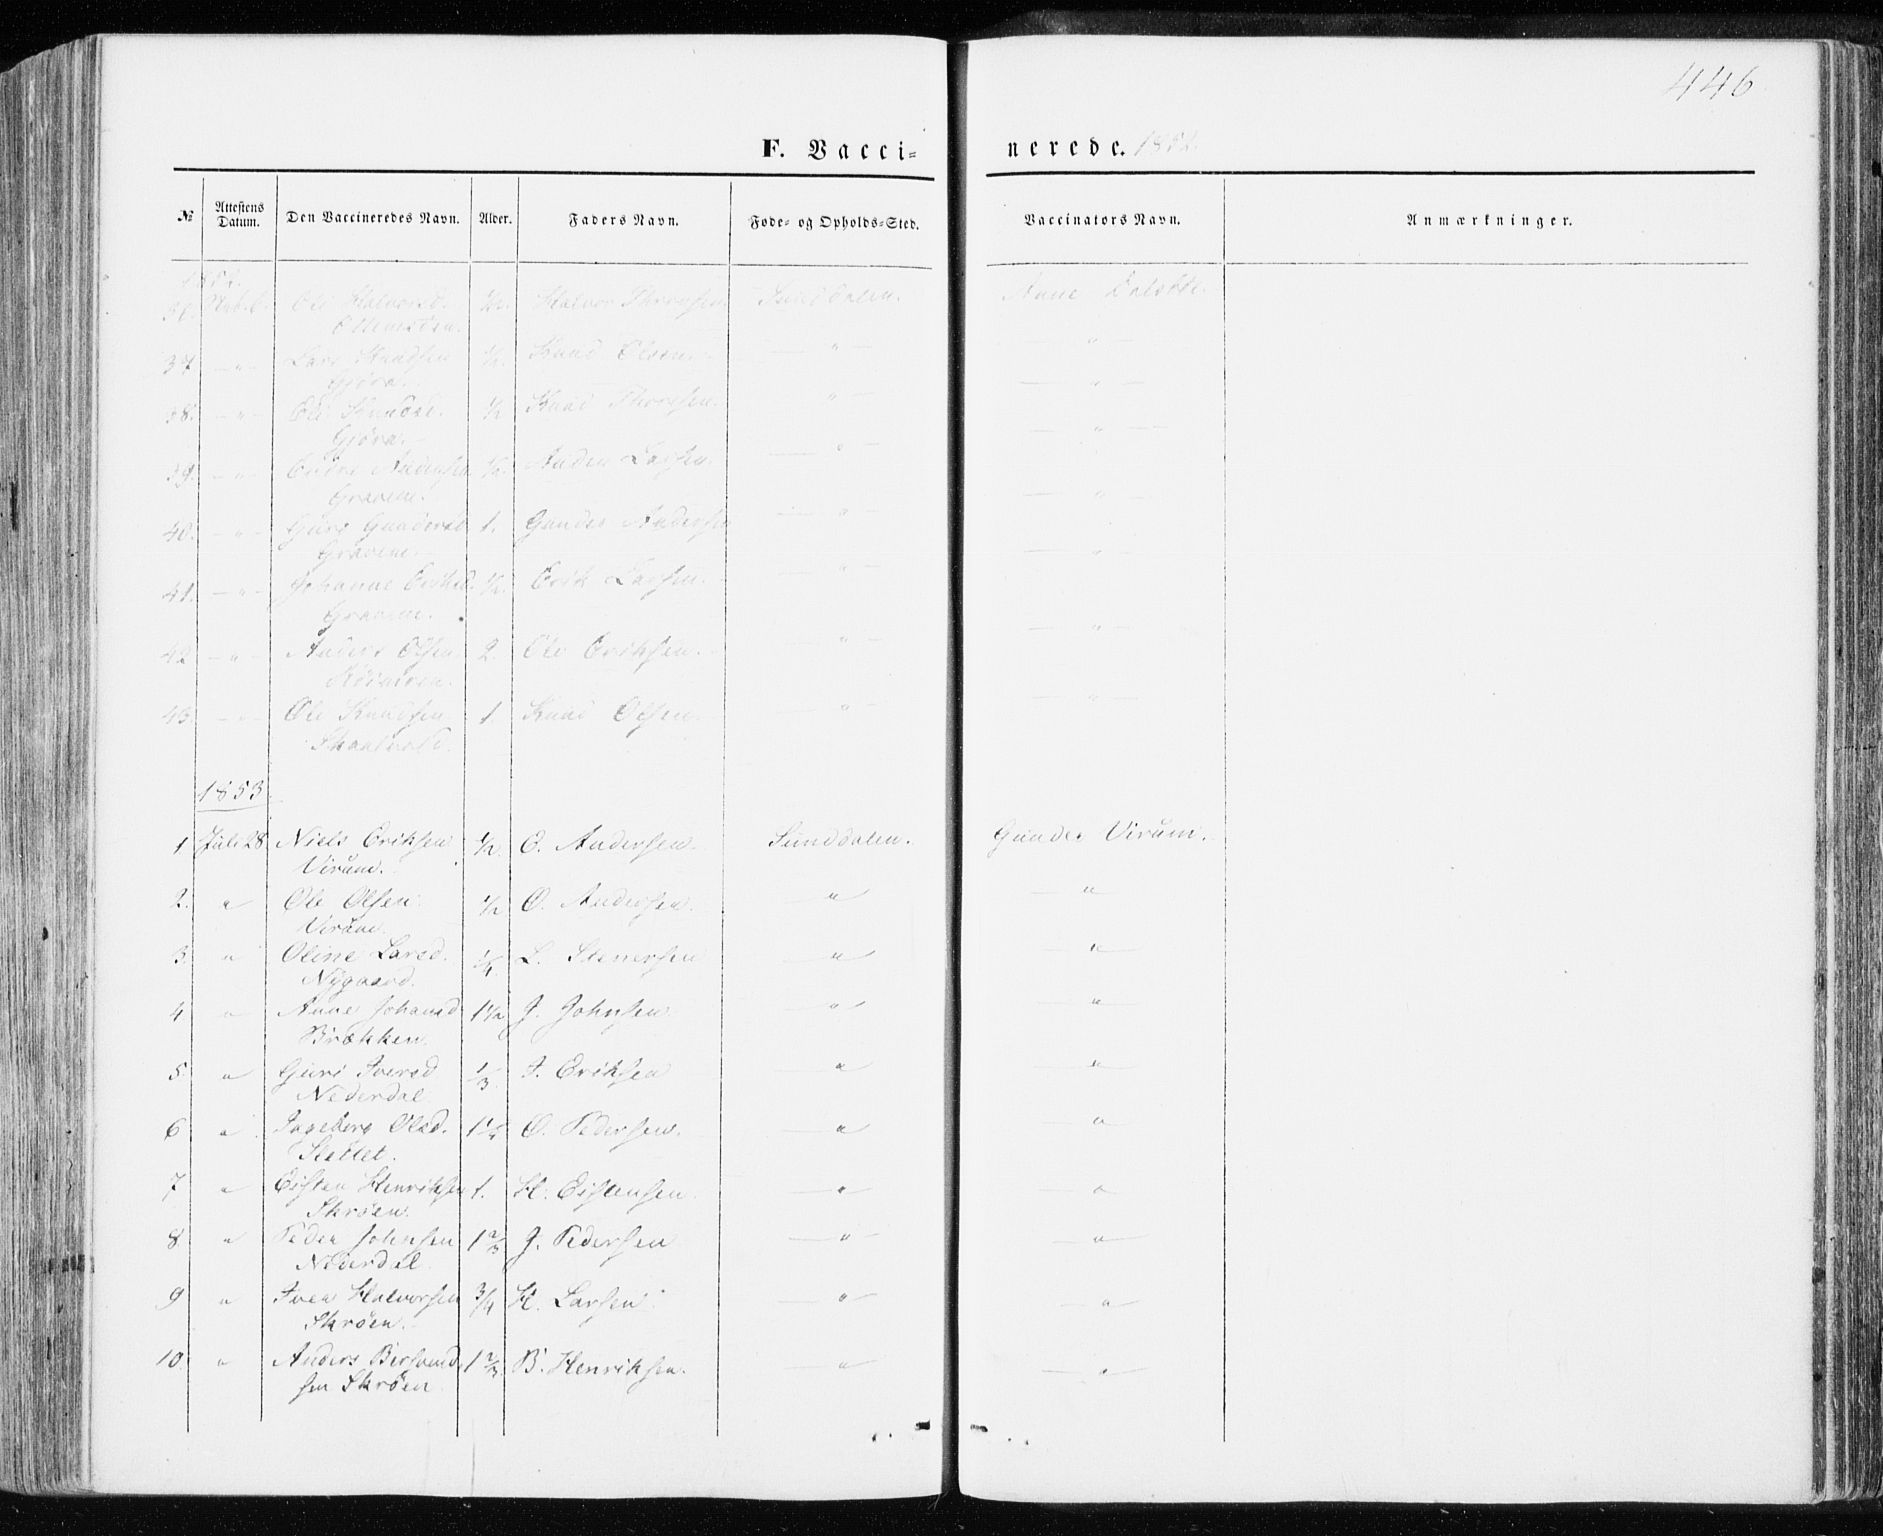 446
F. Vaccinerede. 1852.
№ Attestens Datum. Den Vaccineredes Navn. Alder. Faders Navn. Føde- og Opholds-Sted. Vaccinators Navn. Anmærkninger.
1852.
Ole Halvorsd. ½. Halvor Thronsen. Sunddalen. Anne
37 — " — Lars Knudsen ½. Knud Olsen. — " — — " —
Gjøra.
38. — " — Ole Knuds. ½ Knud — " — — " —
Gjøra.
39. — " — Endre Andersen ½. Anders Larsen. — " — — " —
Gravem.
40. — " — Guri Gundersd. 1. Gunder Andersen — " — — " —
Gravem.
41. — " — Johanne Eriksd. ½. Erik Larsen. — " — — " —
Gravem.
42 — " — Anders Olsen 2. Ole Eriksen. — " — — " —
43. — " — Ole Knudsen 1. Knud Olsen. — " — — " —
1853
1 Juli 28 Niels Eriksen ½ O. Andersen. Sunddalen. Gunder Virum.
Virum.
2. " Ole Olsen ½ O. Andersen. — " — — " —
Virum.
3. " Oline Larsd. ¼ L. Stenersen — " — — " —
Nygaard.
4 " Anne Johansd 1½ J. Johnsen — " — — " —
Brækken.
5. " Guri Iversd ⅓. I. Eriksen — " — — " —
Nederdal
6 " Ingeborg Olsd. O. Pedersen. — " — — " —
Slettet.
7 " Eisten Henriksen 1. H. Eistensen. — " — — " —
Skrøen.
8 " Peder Johnsen 1⅔ J. Pedersen — " — — " —
Nederdal.
9 " Iver Halvorsen ¾ H. Larsen. — " — — " —
Skrøen.
10. " Anders Bersvend 1⅔ B. Henriksen. — " — — " —
sen Skrøen